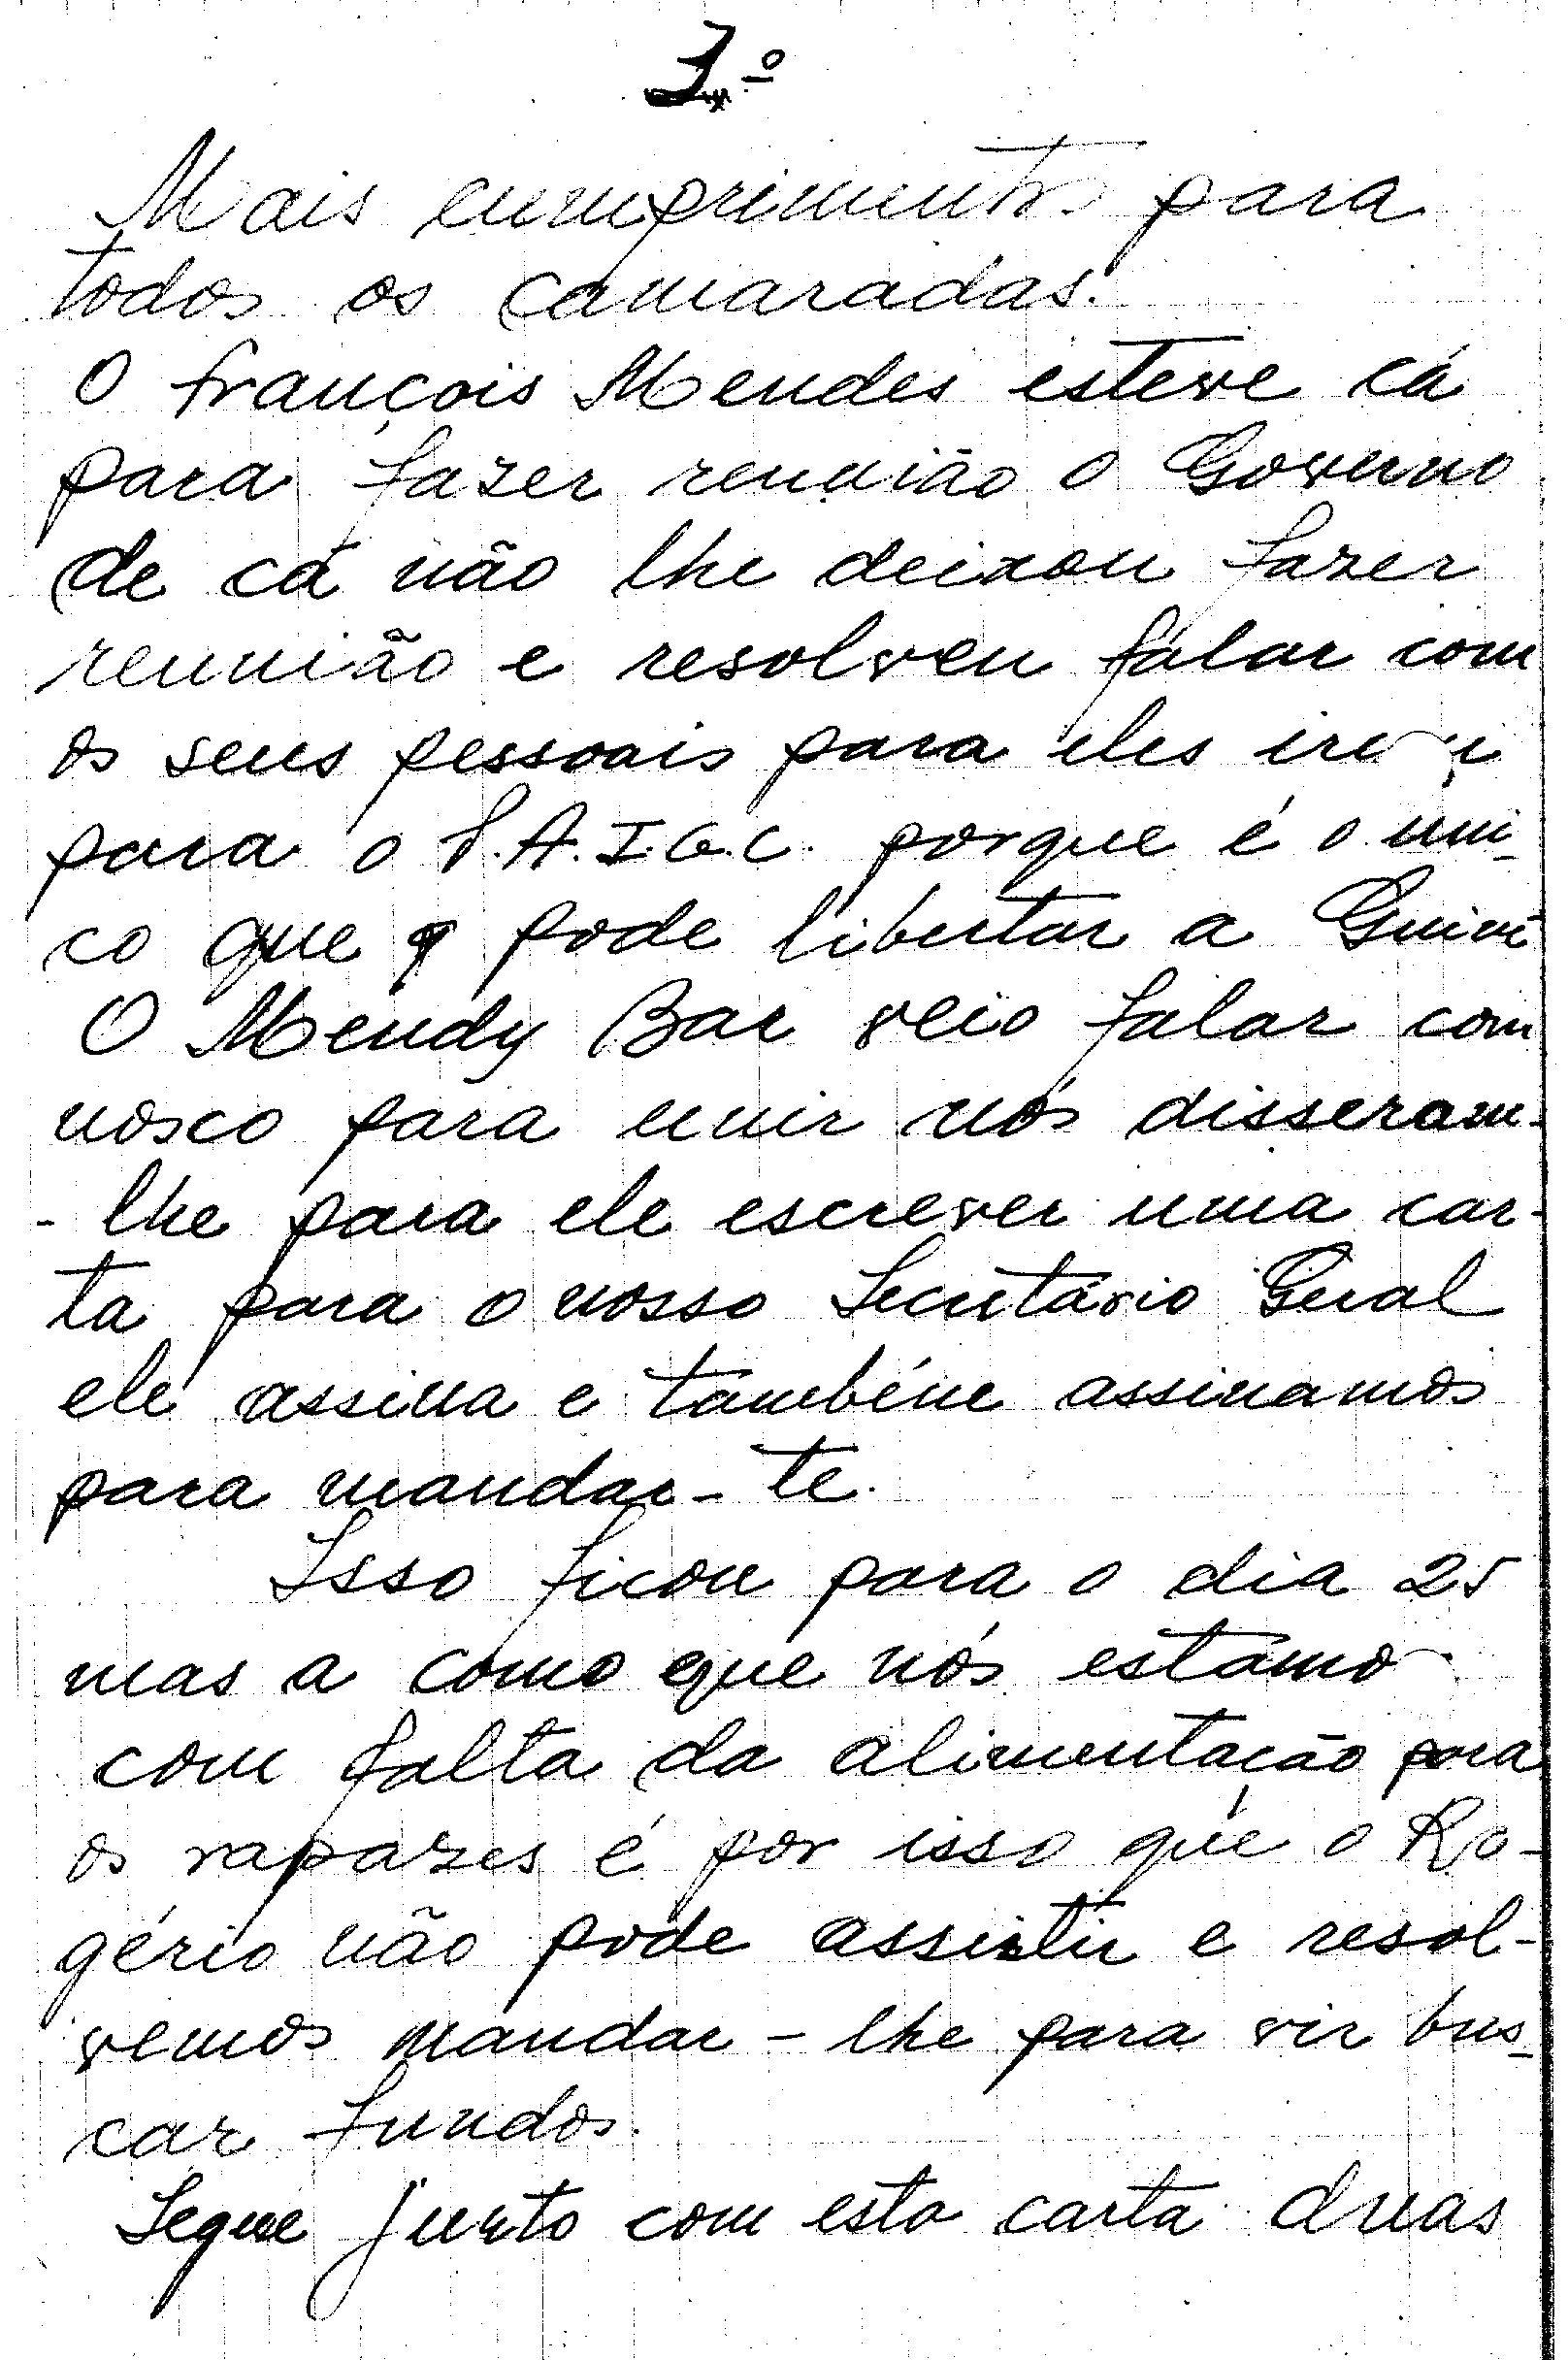 Mais cumprimentos para
todos os camaradas.
O François Mendes esteve cá
para fazer reunião o Governo
de cá não lhe deixou fazer
reunião e resolveu falar com
os seus pessoais para eles
para o P.A.I.G.C. porque é o uni-
co que pode libertar a Guiné
O Mendy Bar veio falar com
nosco para unir nós disseram-
-lhe para ele escrever uma car-
ta para o nosso Secretário Geral
ele assina e também assinamos
para mandar-te.
Isso ficou para o dia 25
mas a como que nós estamos
com falta da alimentação para
os rapazes é por isso que o Ro-
gério não pode assistir e resol-
vemos mandar-lhe para vir bus-
car fundos.
Segue junto com esta carta duas